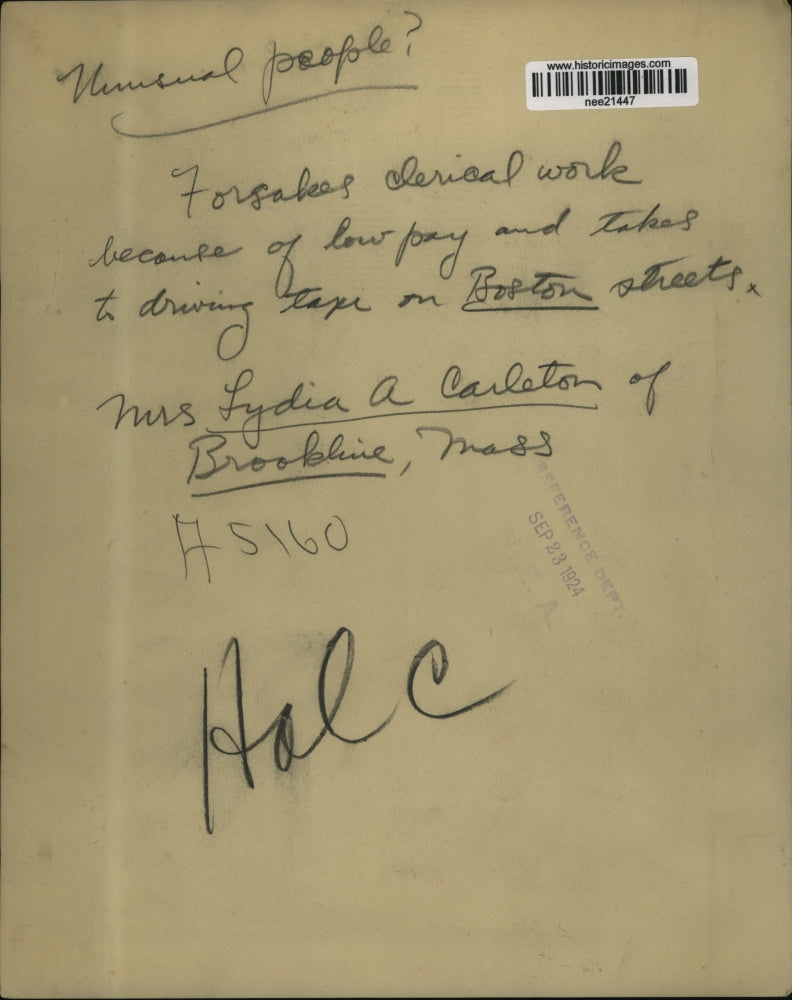 Unusual people?
www.historicimages.com
nee21447
Forsakes clerical work
because of low pay and takes
to driving taxi on Boston streets.
Mrs Lydia A Carleton of
Brookline, Mass
REFERENCE DEPT.
SEP 23 1924
A 5160
Hal C